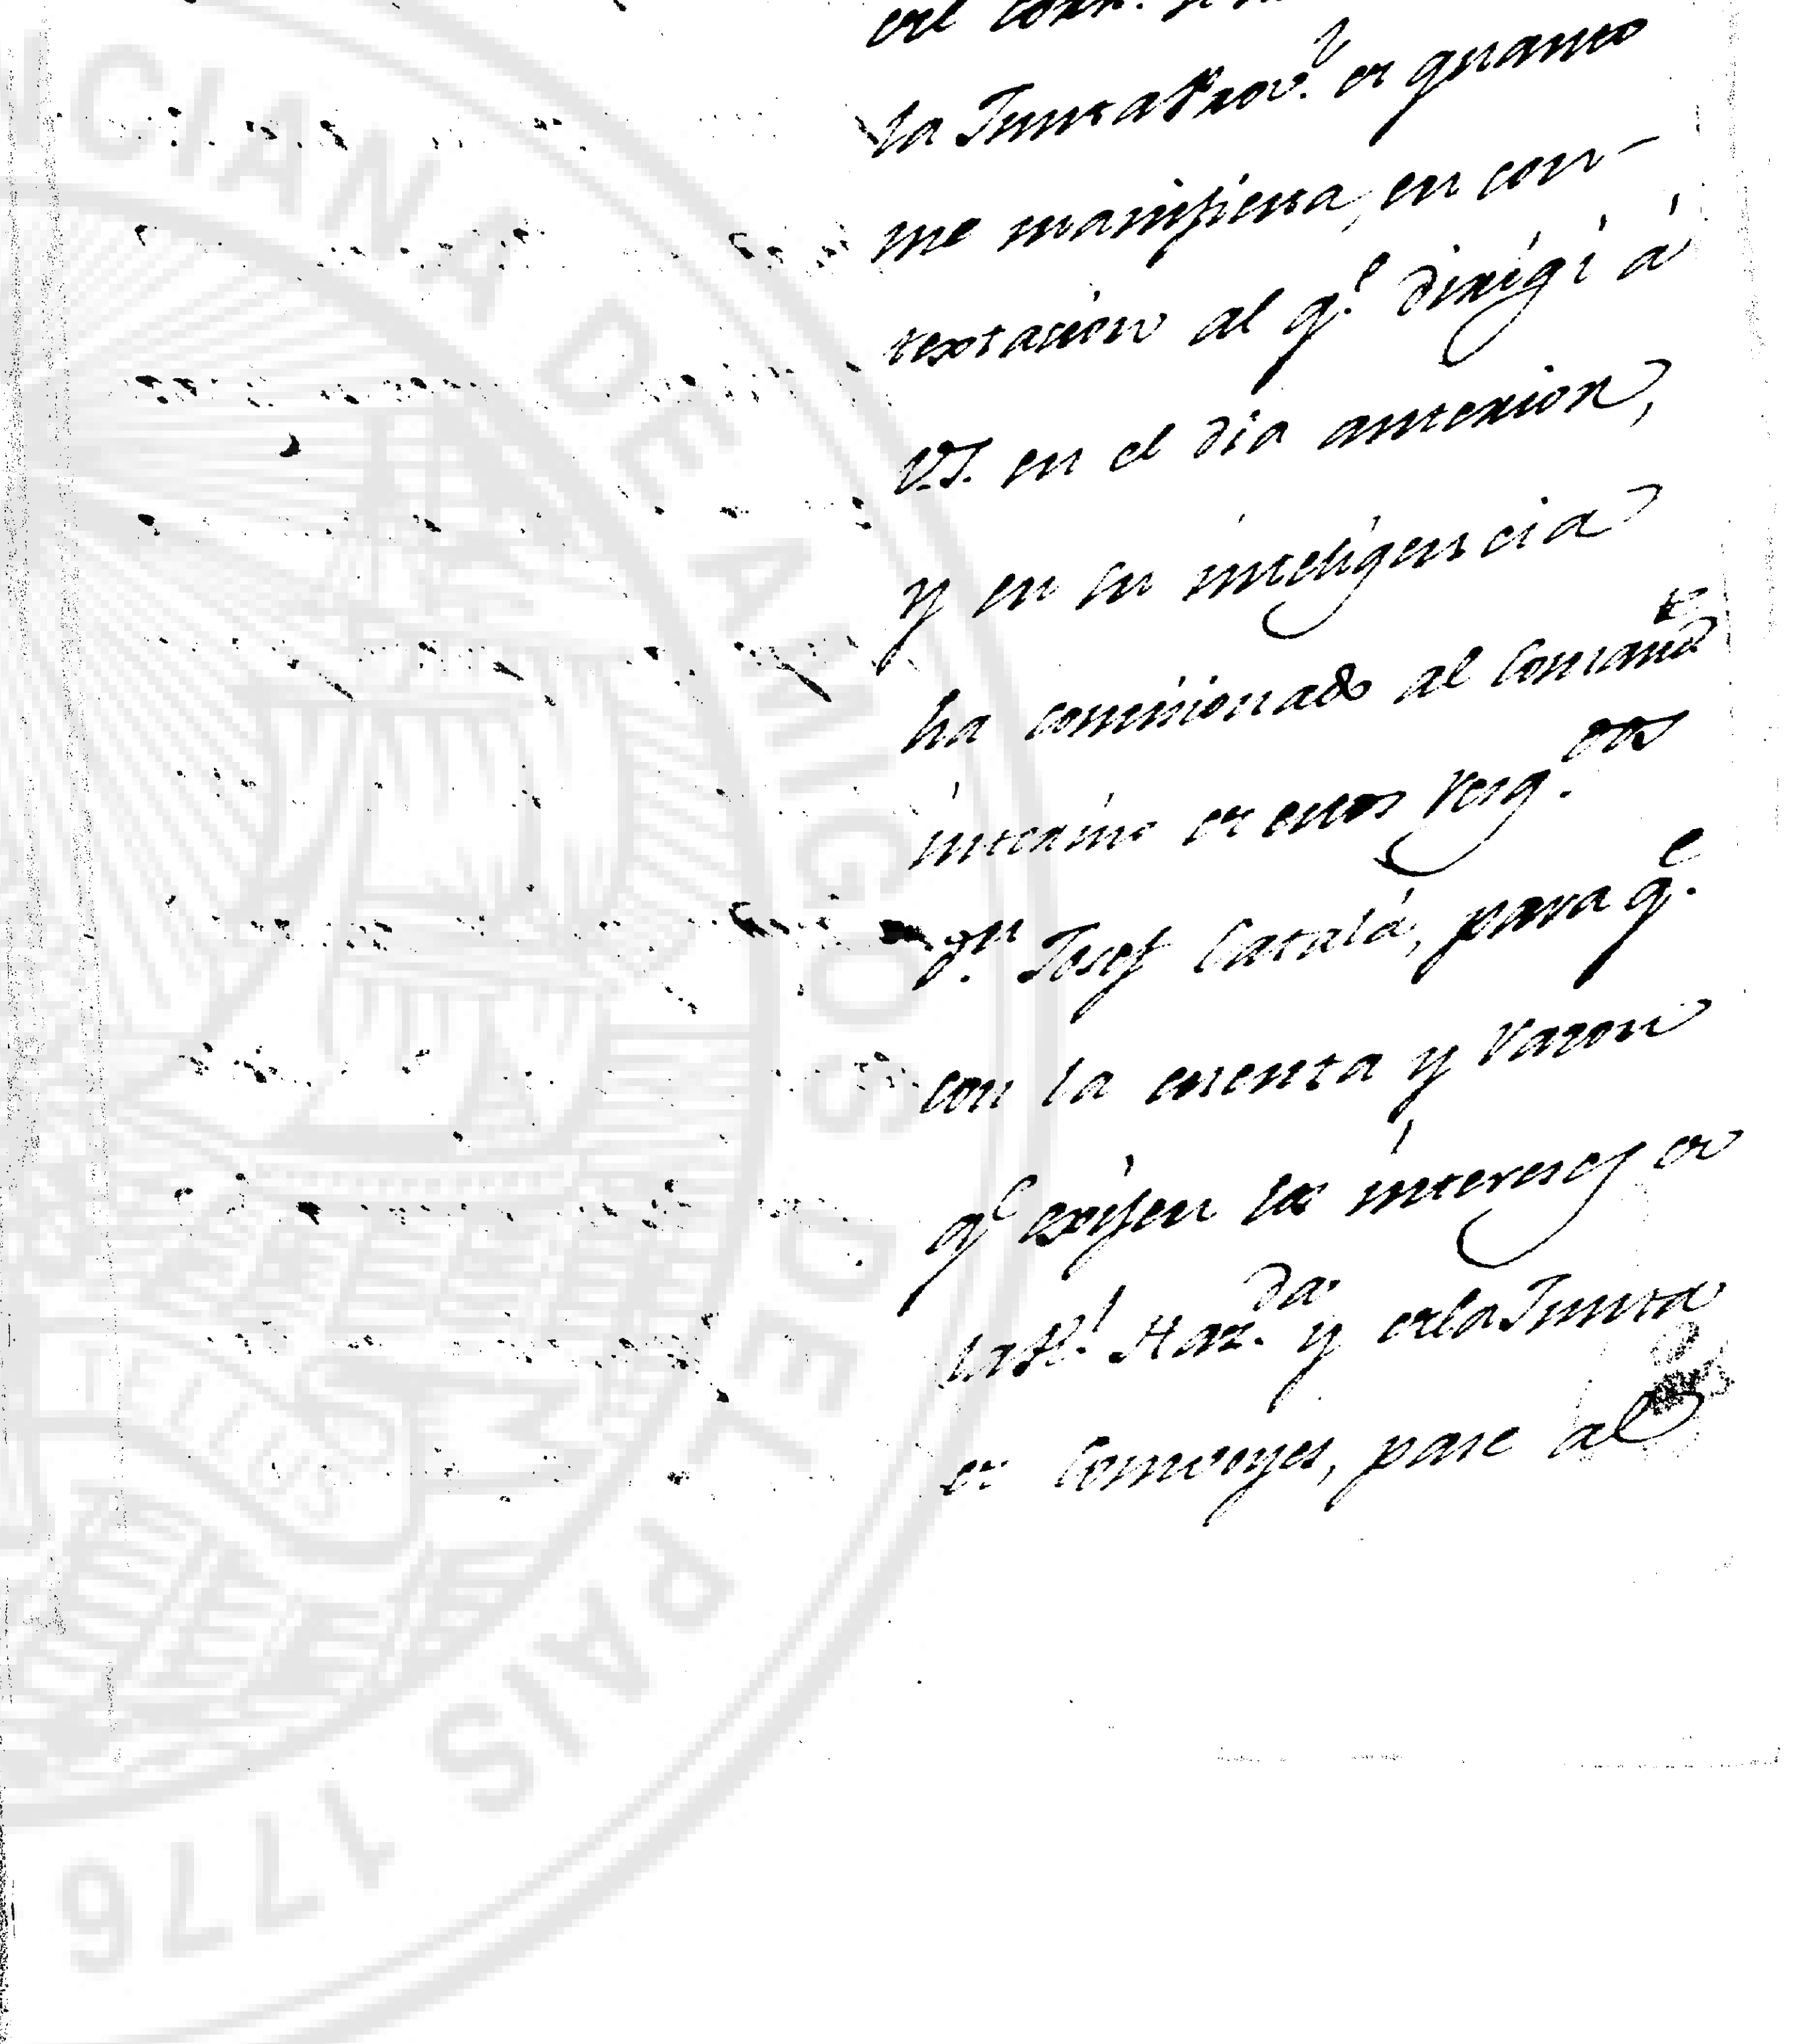 del corr.te
la Junta Prov.l de quanto
me manifiesta, en con-
textacion al q.e dirigí á
V.S. en el dia anterior,
y en su inteligencia
ha comisionado al Comand.te
interino de estos Resg.dos
D.n Josef Catalá, para q.e
con la cuenta y razon
q.e exîjen los intereses de
la R.l Haz.da y de la Junta
de Comboyes, pase al
CIANA DE AMIGOS DEL PAIS 1776